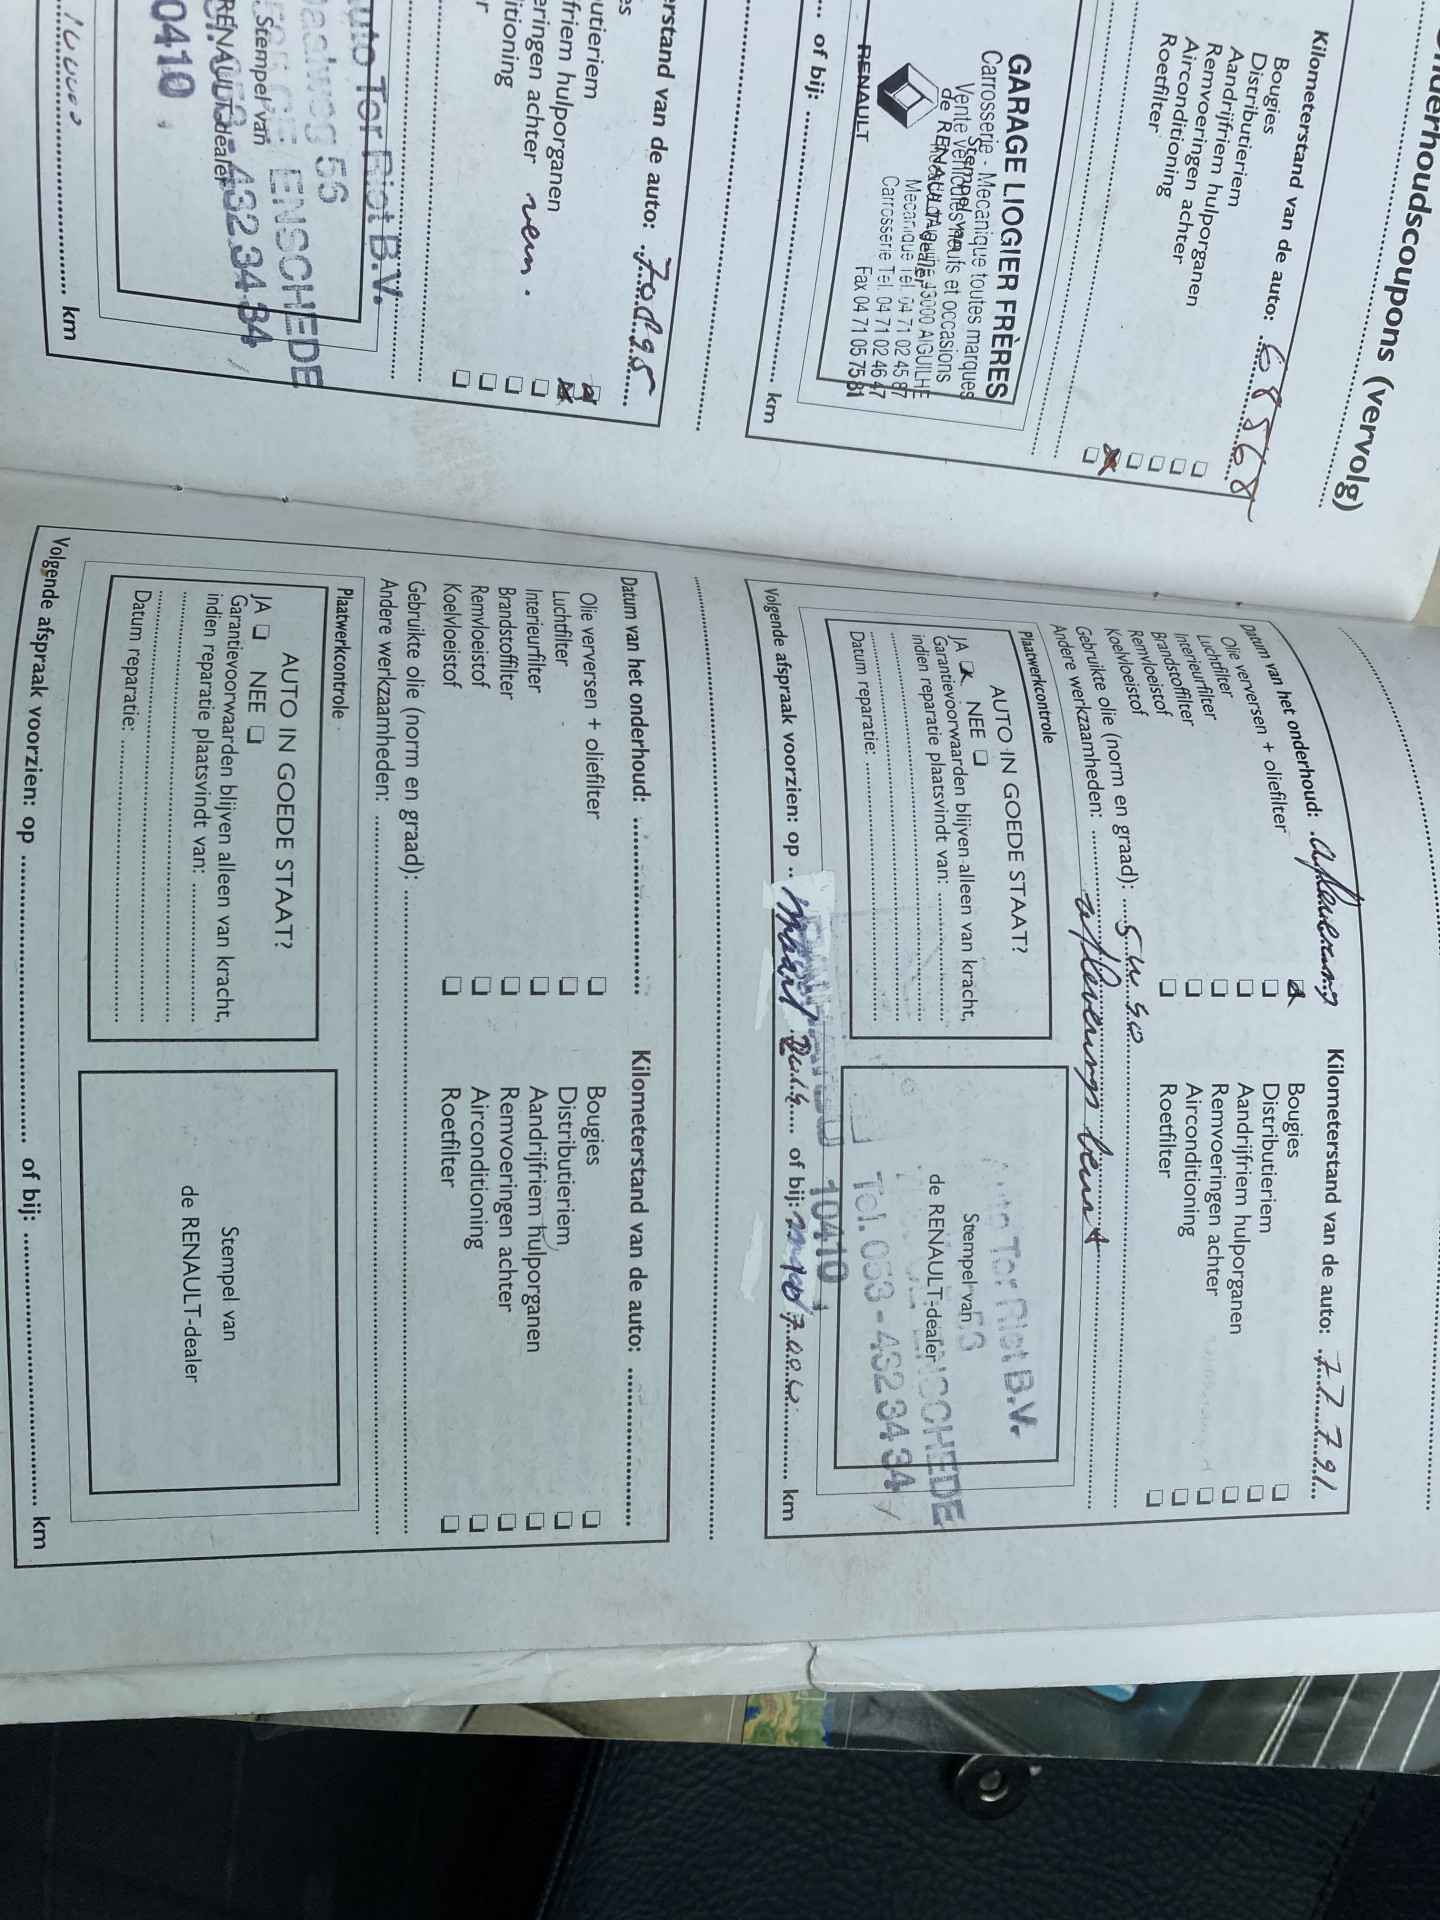 nderhoudscoupons (vervolg)
Kilometerstand van de auto: 68568
Bougies
Distributieriem
Aandrijfriem hulporganen
Remvoeringen achter
Airconditioning
Roetfilter
GARAGE LIOGIER FRÈRES
Carrosserie - Mecanique toutes marques
Vente véhicules neufs et occasions
Stempel van
de RENAULT-dealer
43000 AIGUILHE
Mecanique Tel. 04 71 02 45 87
Carrosserie Tel. 04 71 02 46 47
Fax 04 71 05 75 81
RENAULT
of bij: km
rstand van de auto:
es
utieriem
friem hulporganen
eringen achter
itioning
r
uto Ter Riet B.V.
56
ENSCHEDE
Stempel van
RENAULT-dealer
- 432 34 34
0410
km
Datum van het onderhoud: aflevering
Kilometerstand van de auto: 77791
Olie verversen + oliefilter
Luchtfilter
Interieurfilter
Brandstoffilter
Remvloeistof
Koelvloeistof
Bougies
Distributieriem
Aandrijfriem hulporganen
Remvoeringen achter
Airconditioning
Roetfilter
Gebruikte olie (norm en graad): 5 w 40
Andere werkzaamheden: afleverings beurt
Plaatwerkcontrole
AUTO IN GOEDE STAAT?
JA NEE
Garantievoorwaarden blijven alleen van kracht,
indien reparatie plaatsvindt van:
Datum reparatie:
Ter Riet B.V.
ENSCHEDE
Tel. 053 - 432 34 34
Stempel van
de RENAULT-dealer
RENAULT 10410
Volgende afspraak voorzien: op maart of bij: km
Datum van het onderhoud:
Kilometerstand van de auto:
Olie verversen + oliefilter
Luchtfilter
Interieurfilter
Brandstoffilter
Remvloeistof
Koelvloeistof
Bougies
Distributieriem
Aandrijfriem hulporganen
Remvoeringen achter
Airconditioning
Roetfilter
Gebruikte olie (norm en graad):
Andere werkzaamheden:
Plaatwerkcontrole
AUTO IN GOEDE STAAT?
JA NEE
Garantievoorwaarden blijven alleen van kracht,
indien reparatie plaatsvindt van:
Datum reparatie:
Stempel van
de RENAULT-dealer
Volgende afspraak voorzien: op of bij: km